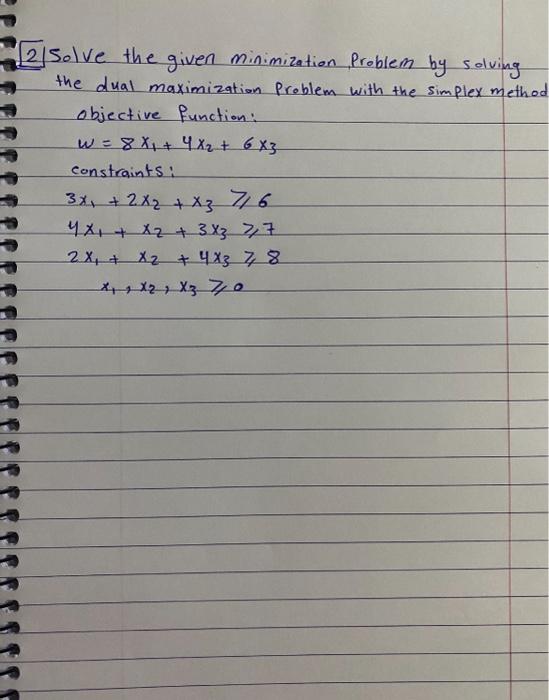 2 Solve the given minimization Problem by solving
the dual maximization Problem with the simplex method
objective function:
w = 8 x₁ + 4 x₂ + 6 x₃
constraints:
3x₁ + 2x₂ + x₃ ⩾ 6
4x₁ + x₂ + 3x₃ ⩾ 7
2x₁ + x₂ + 4x₃ ⩾ 8
x₁, x₂, x₃ ⩾ 0